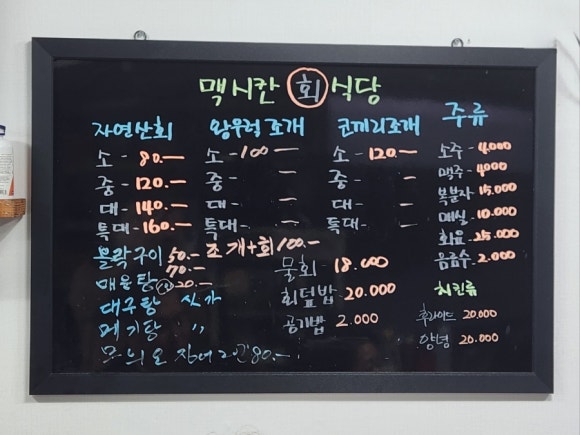 맥시칸 회 식당
자연산회
소 - 80.—
중 - 120.—
대 - 140.—
특대 - 160.—
왕우럭조개
소 - 100 —
중 - —
대 - —
특대 - —
코끼리조개
소 - 120.—
중 - —
대 - —
특대 - —
주류
소주 - 4.000
맥주 - 4000
복분자 15.000
매실 - 10.000
화요 - 25.000
음료수 - 2.000
볼락구이 50.—
70.—
조개+회 100.—
매운탕 20.—
대구탕 싯가
메기탕 〃
80.—
물회 18.000
회덮밥 20.000
공기밥 2.000
치킨류
후라이드 20.000
양념 20.000